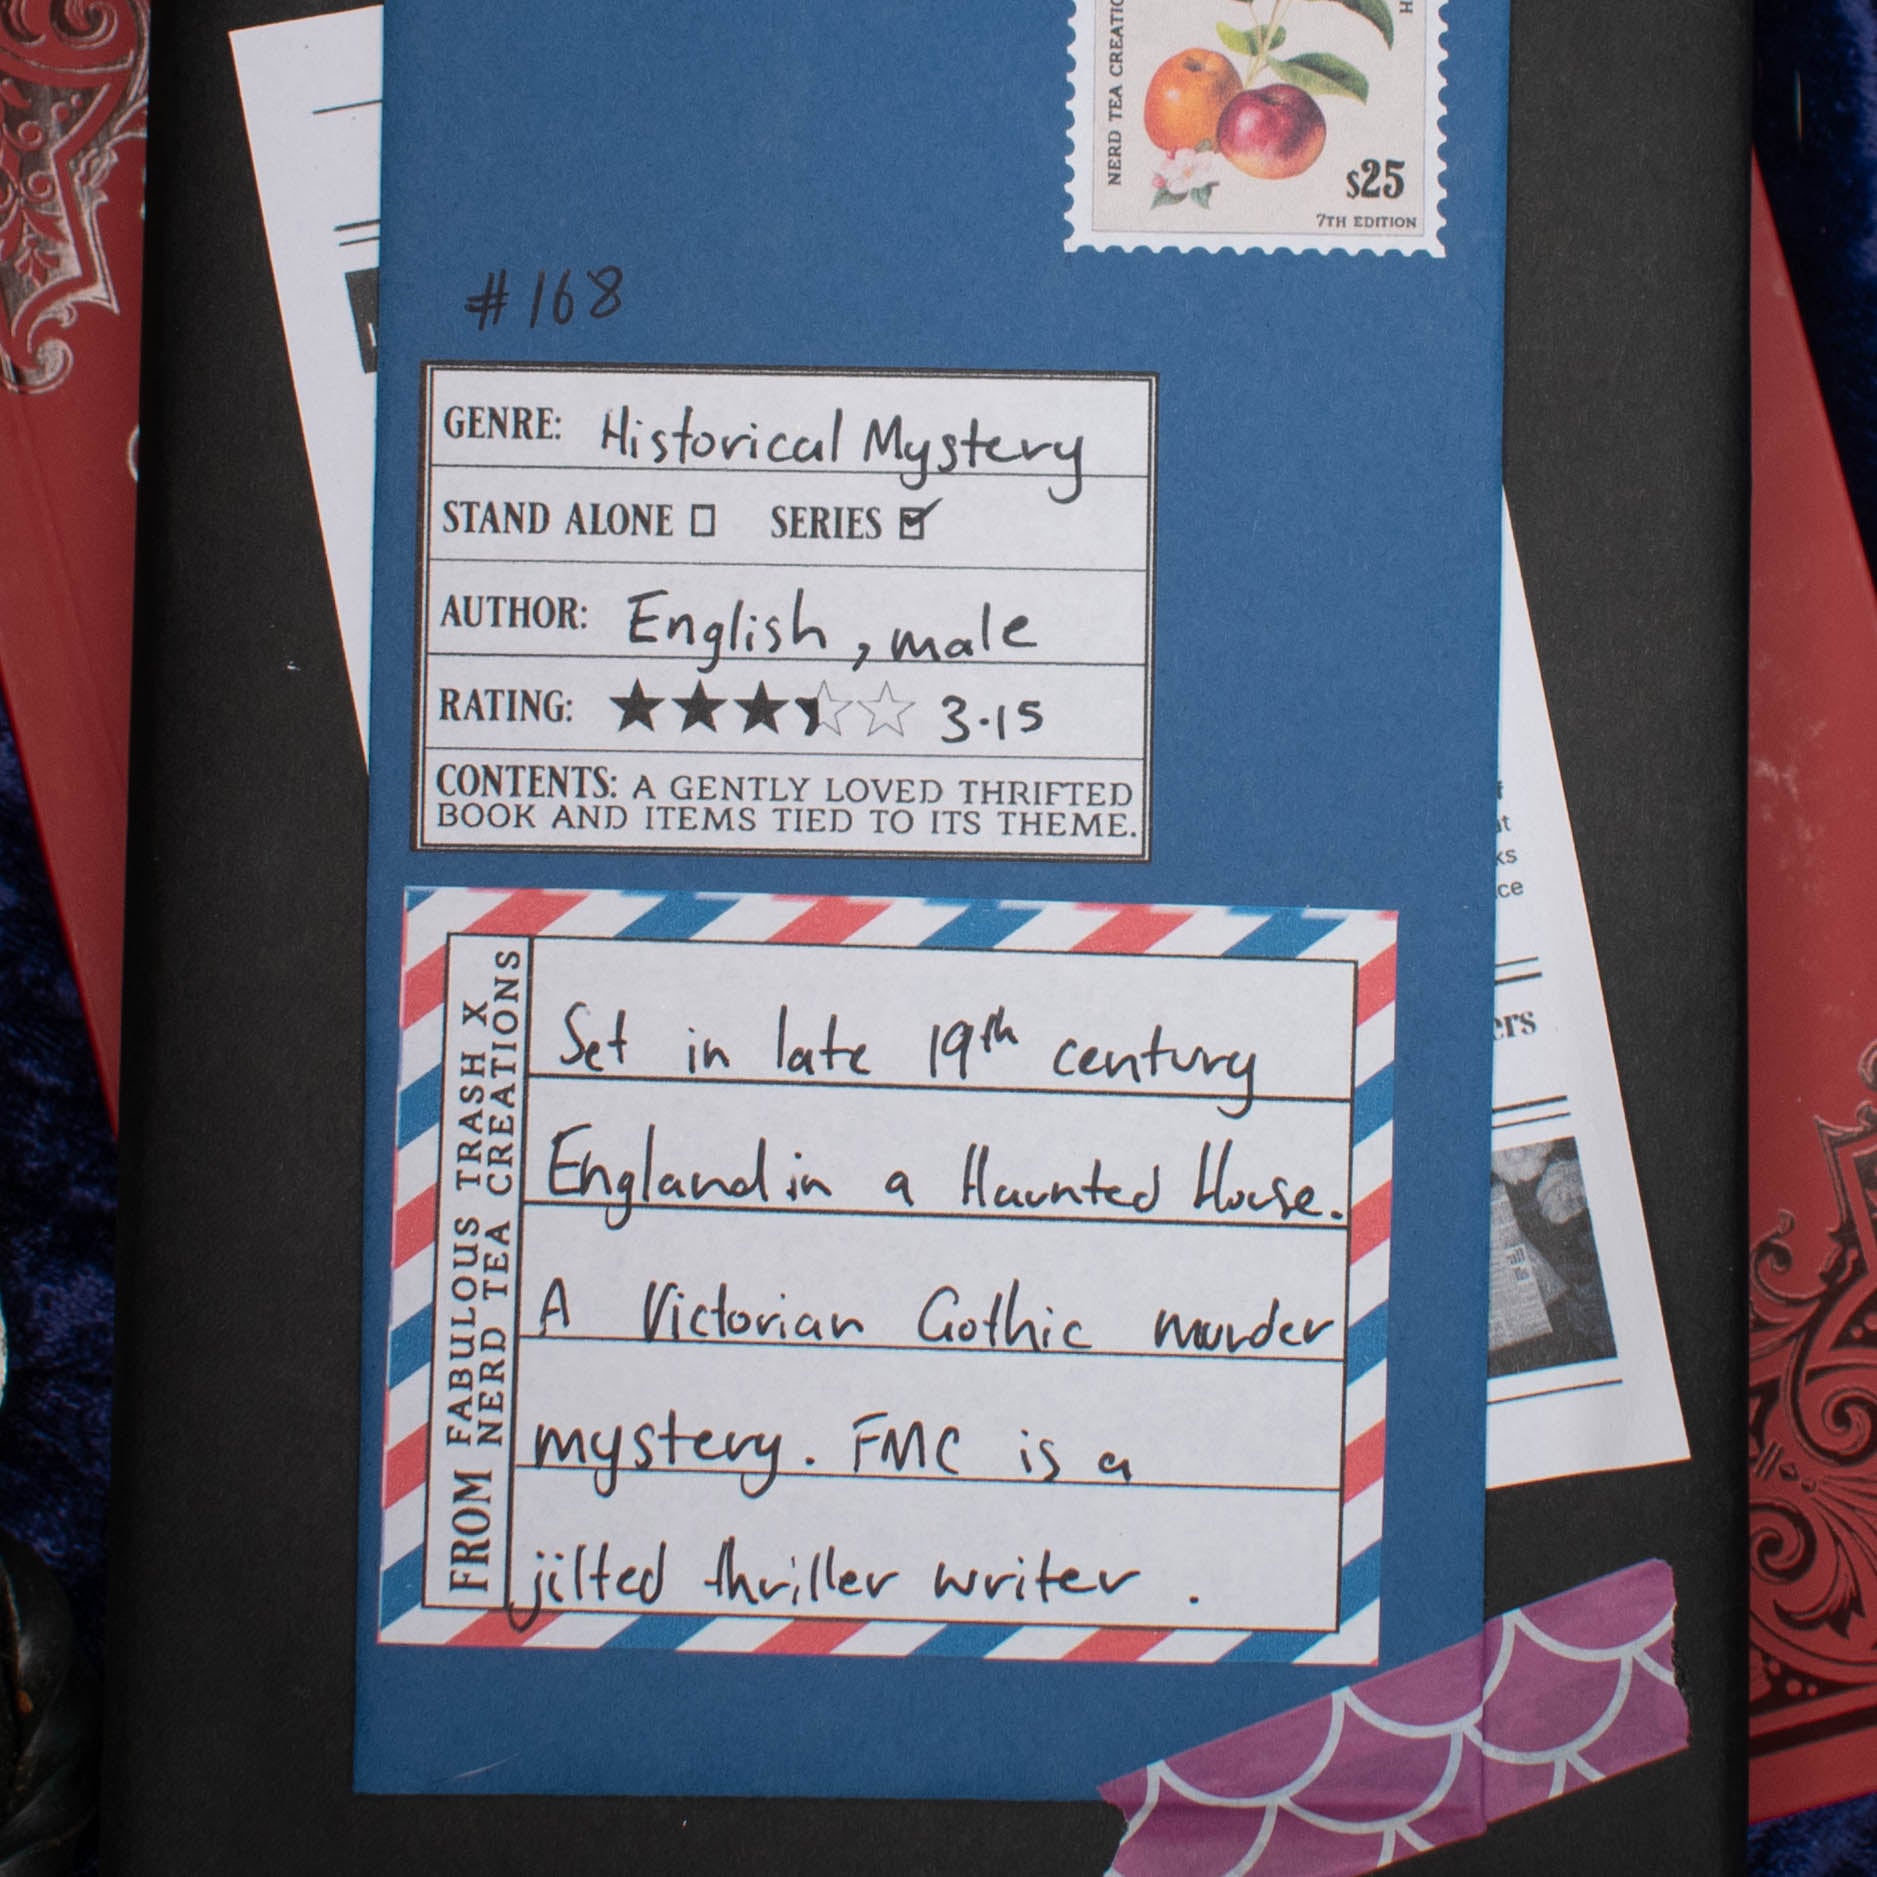 NERD TEA CREATIO
H
$25
7TH EDITION
#168
GENRE: Historical Mystery
STAND ALONE ☐ SERIES ☑
AUTHOR: English, male
RATING: ★★★ 3.15
CONTENTS: A GENTLY LOVED THRIFTED
BOOK AND ITEMS TIED TO ITS THEME.
FROM FABULOUS TRASH X
NERD TEA CREATIONS
Set in late 19th century
England in a Haunted House.
A Victorian Gothic murder
mystery. FMC is a
jilted thriller writer.
ks
ce
ers